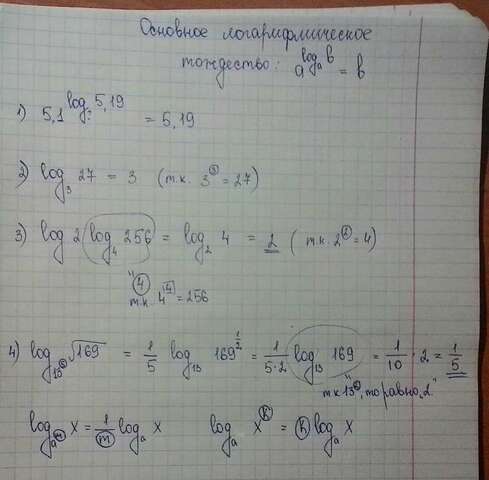 Основное логарифмическое
тождество: a^{log_a b} = b
1) 5,1^{log_? 5,19} = 5,19
2) log_3 27 = 3 (т.к. 3^③ = 27)
3) log 2 (log_4 256) = log_2 4 = 2 (т.к. 2^② = 4)
"④
т.к. 4^{4} = 256
4) log_{13^⑤} √169 = 1/5 log_{13} 169^{1/2} = 1/(5·2) log_{13} 169 = 1/10 · 2 = 1/5
т.к 13^②, то равно „2"
log_{a^ⓜ} x = 1/ⓜ log_a x log_a x^ⓚ = ⓚ log_a x